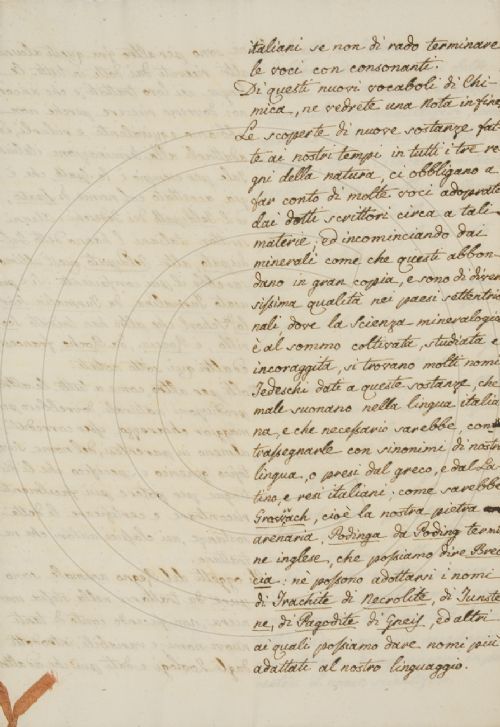 italiani se non di rado terminare
le voci con consonanti.
Di questi nuovi vocaboli di Chi-
mica, ne vedrete una Nota in fine
Le scoperte di nuove sostanze fat-
te ai nostri tempi in tutti i tre re-
gni della natura, ci obbligano a
far conto di molte voci adoprate
dai dotti scrittori circa a tali
materie; ed incominciando dai
minerali come che questi abbon-
dano in gran copia, e sono di diver
sissima qualità nei paesi settentrio
nali, dove la scienza mineralogica
è al sommo coltivata, studiata e
incoraggita, si trovano molti nomi
Tedeschi dati a queste sostanze, che
male suonano nella lingua italia
na, e che necessario sarebbe, con
trassegnarle con sinonimi di nostra
lingua, o presi dal greco, e dal La
tino, e resi italiani; come sarebbe
cioè la nostra pietra
arenaria, Podinga da Poding termi
ne inglese, che possiamo dire Brec
cia: ne possono adottarsi i nomi
di Trachite di Necrolite, di Tunste
ne, di Pagodite di Gneis, ed altri
ai quali possiamo dare nomi più
adattati al nostro linguaggio.